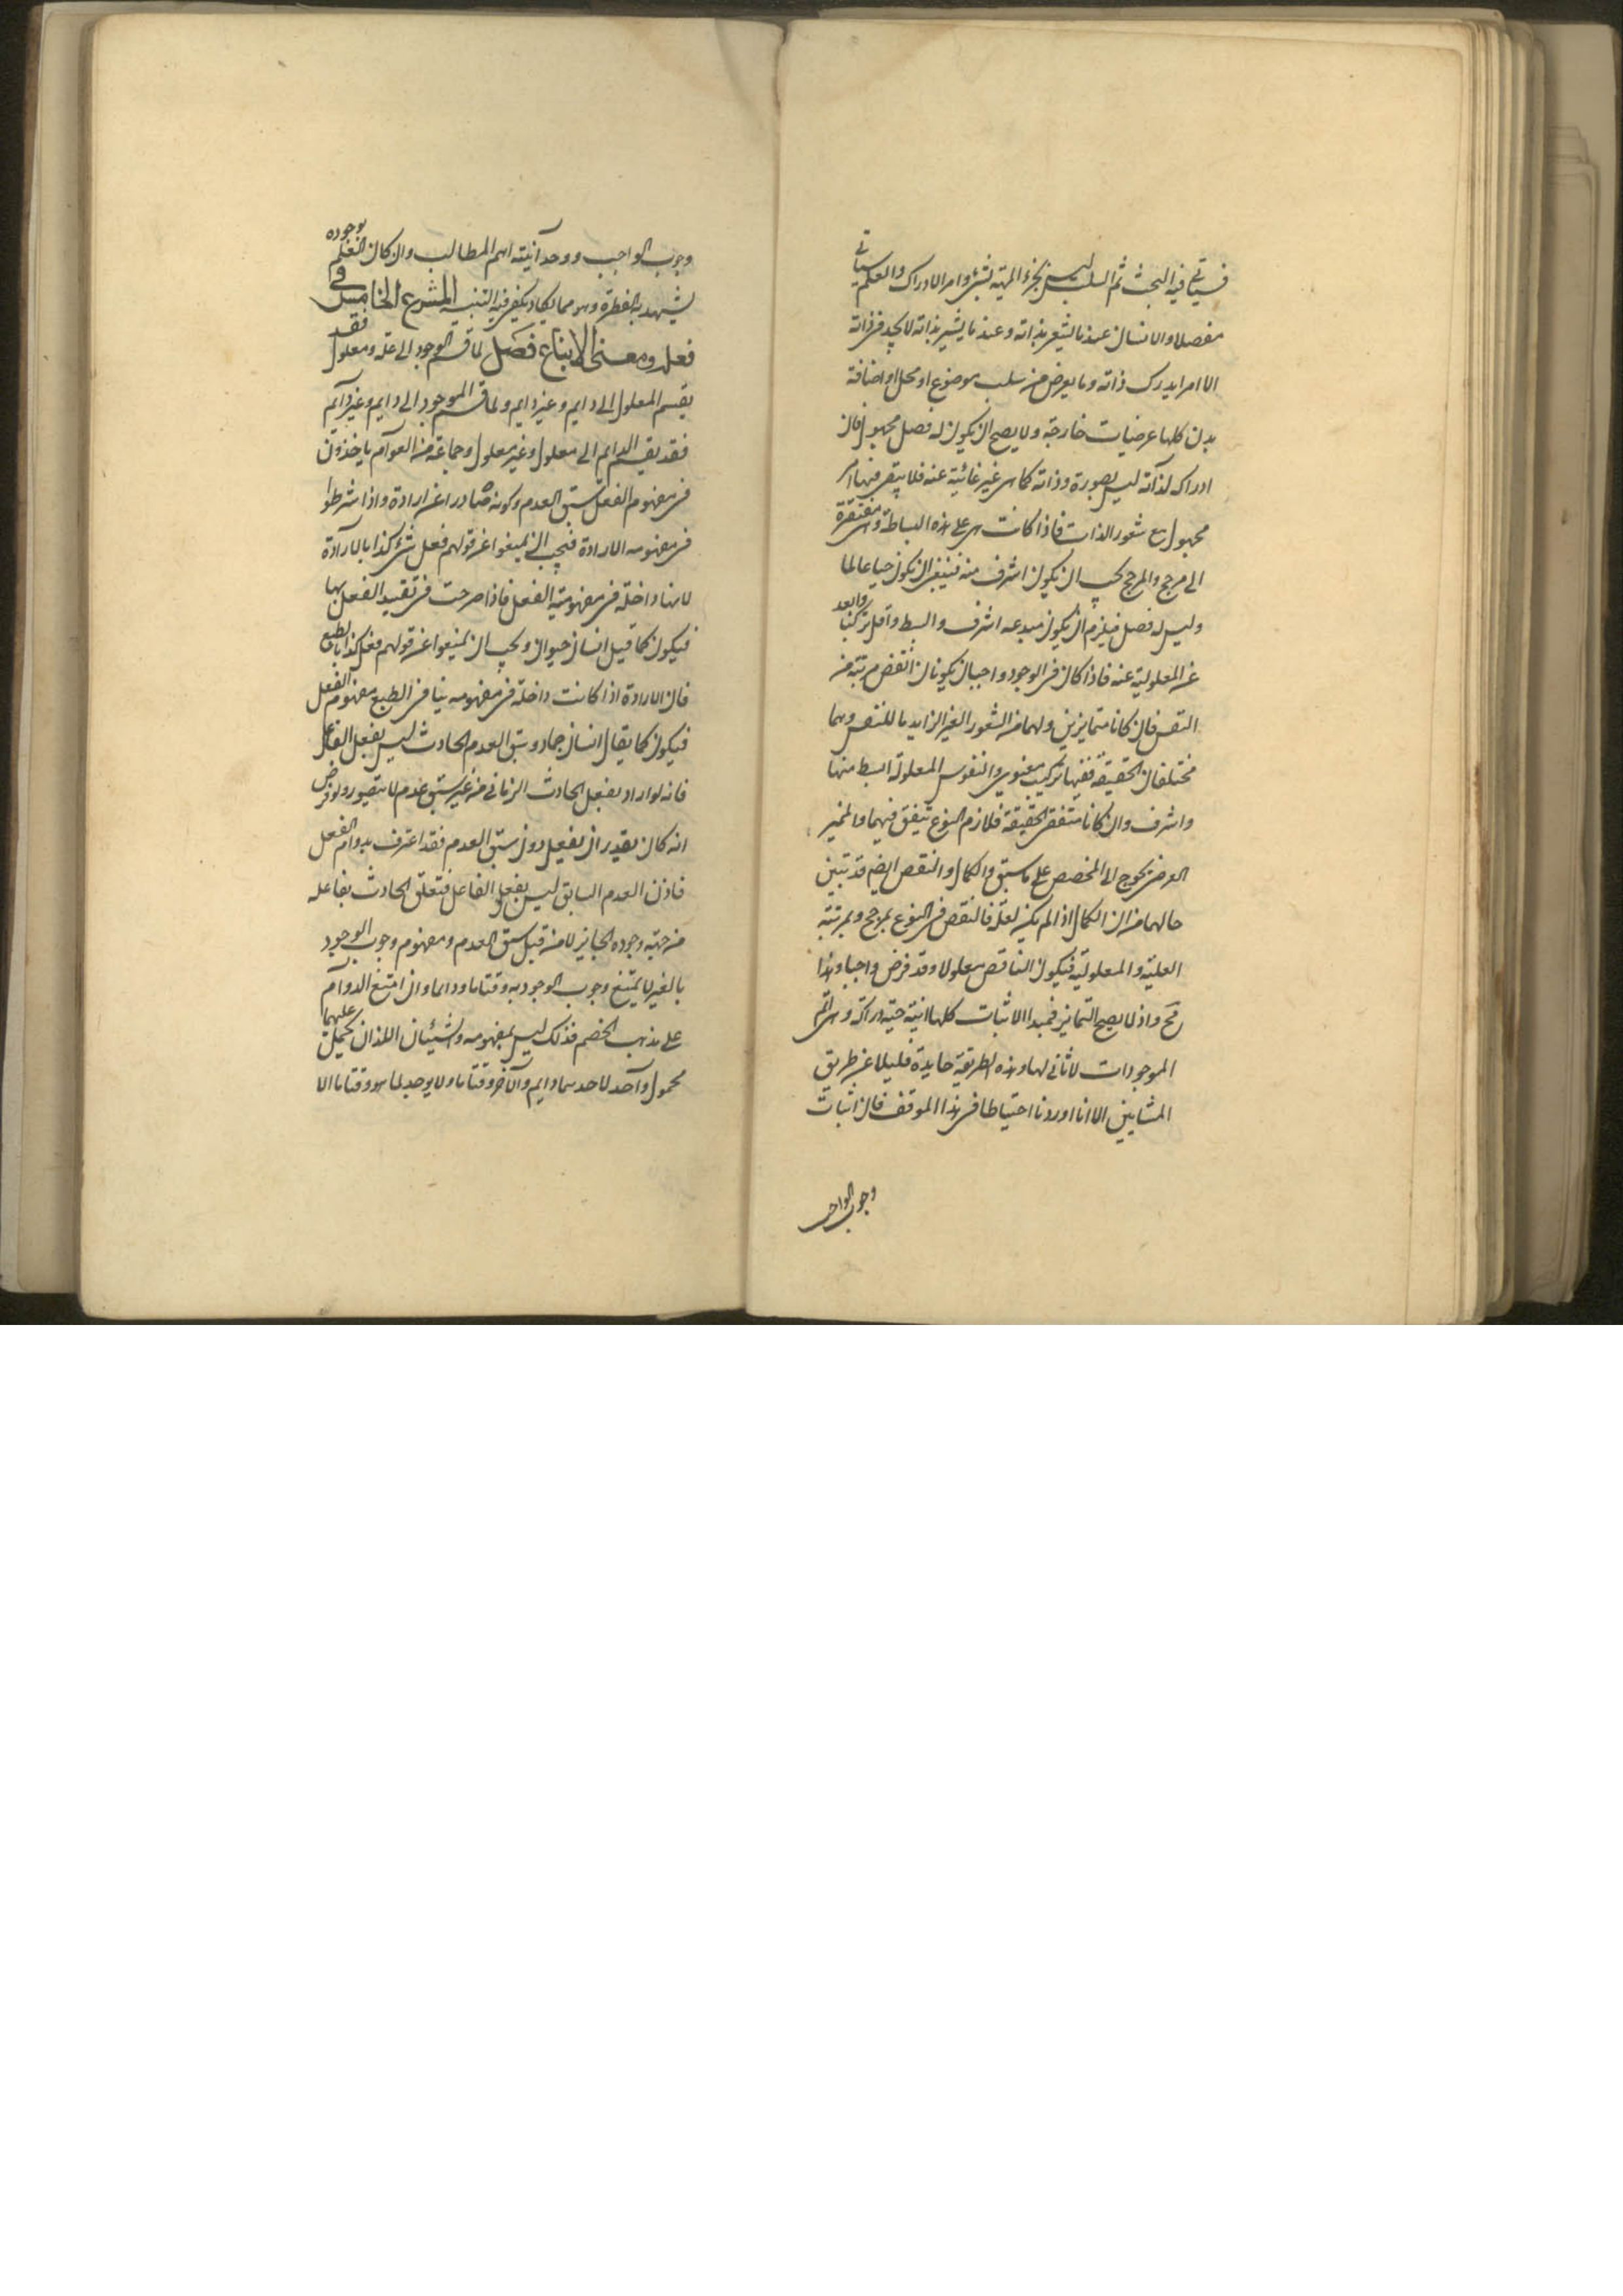 فسياتى فيه البحث ثم السلب ليس بجزء المهية لشىء وامر الادراك والعلم سياتى
مفصلا والانسان عند ما يشعر بذاته وعند ما يشير بذاته لا يجد فى ذاته
الا امرا يدرك ذاته وما يعرض من سلب موضوع او محل او اضافة
بدن كلها عرضيات خارجة ولا يصح ان يكون له فصل مجهول فان
ادراكه لذاته ليس بصورة وذاته كما هى غير غائبة عنه فلا يبقى فيها امر
مجهول مع شعور الذات فاذا كانت هى على هذه البساطة وهى مفتقرة
الى مرجح والمرجح يجب ان يكون اشرف منه فينبغى ان يكون حيا عالما
وليس له فصل فيلزم ان يكون مبدعه اشرف وابسط واقل تركيبا وابعد
عن المعلولية عنه فاذا كان فى الوجود واجبان يكونان انقص مرتبة من
النفس فان كانا متمايزين ولهما من الشعور الغير الزايد ما للنفس وهما
مختلفان الحقيقة ففيهما تركيب معنوى والنفوس المعلولة ابسط منها
واشرف وان كانا متفقى الحقيقة فلازم النوع يتفق فيهما والمميز
العرضى يحوج الى المخصص على ما سبق والكمال والنقص ايضم قد تبين
حالهما من ان الكمال اذا لم يكن لعلة فالنقص فى النوع بمرجح وبمرتبة
العلية والمعلولية فيكون الناقص معلولا وقد فرض واجبا وهذا
مح واذ لا يصح التمايز فمبدا الاثبات كلها انية حية دراكة وهى اتم
الموجودات لا ثانى لها وهذه الطريقة حايدة قليلا عن طريق
المشايين الا انا اوردنا احتياطا فى هذا الموقف فان اثبات
وجوب الواجب
وجوب الواجب ووحدانيته اهم المطالب وان كان العلم بوجوده
يشهد به الفطرة وهو مما يكاد يكفى فيه التنبيه المشرع الخامس فى
فعله ومعنى الابداع فصل لما قسم الوجود الى علة ومعلول فقد
يقسم المعلول الى دايم وغير دايم ولما قسم الموجود الى دايم وغير دايم
فقد يقسم الدايم الى معلول وغير معلول وجماعة من العوام ياخذون
فى مفهوم الفعل سبق العدم وكونه صادرا عن ارادة واذا شرطوا
فى مفهومه الارادة فيجب ان يمنعوا عن قولهم فعل شىء كذا بالارادة
لانها داخلة فى مفهومية الفعل فاذا صرحت فى تقييد الفعل بها
فيكون كما قيل انسان حيوان ويجب ان يمنعوا عن قولهم فعل كذا بالطبع
فان الارادة اذا كانت داخلة فى مفهومه ينافى الطبع مفهوم الفعل
فيكون كما يقال انسان جماد وسبق العدم الحادث ليس بفعل الفاعل
فانه لو اراد يفعل الحادث الزمانى من غير سبق عدم لا يتصور ولو فرض
انه كان يقدر ان يفعل دون سبق العدم فقد اعترف بدوام الفعل
فاذن العدم السابق ليس بفعل الفاعل فتعلق الحادث بفاعله
من جهة وجوده الجايز لا من قبل سبق العدم ومفهوم وجوب الوجود
بالغير لا يمتنع وجوب الوجود به وقتا ما ودايما وان امتنع الدوام
على مذهب الخصم فذلك ليس بمفهومه والشيئان اللذان يحمل عليهما
محمول واحد لاحدهما دايم والآخر وقتا ما ولا يوجد لما هو وقتا ما الا